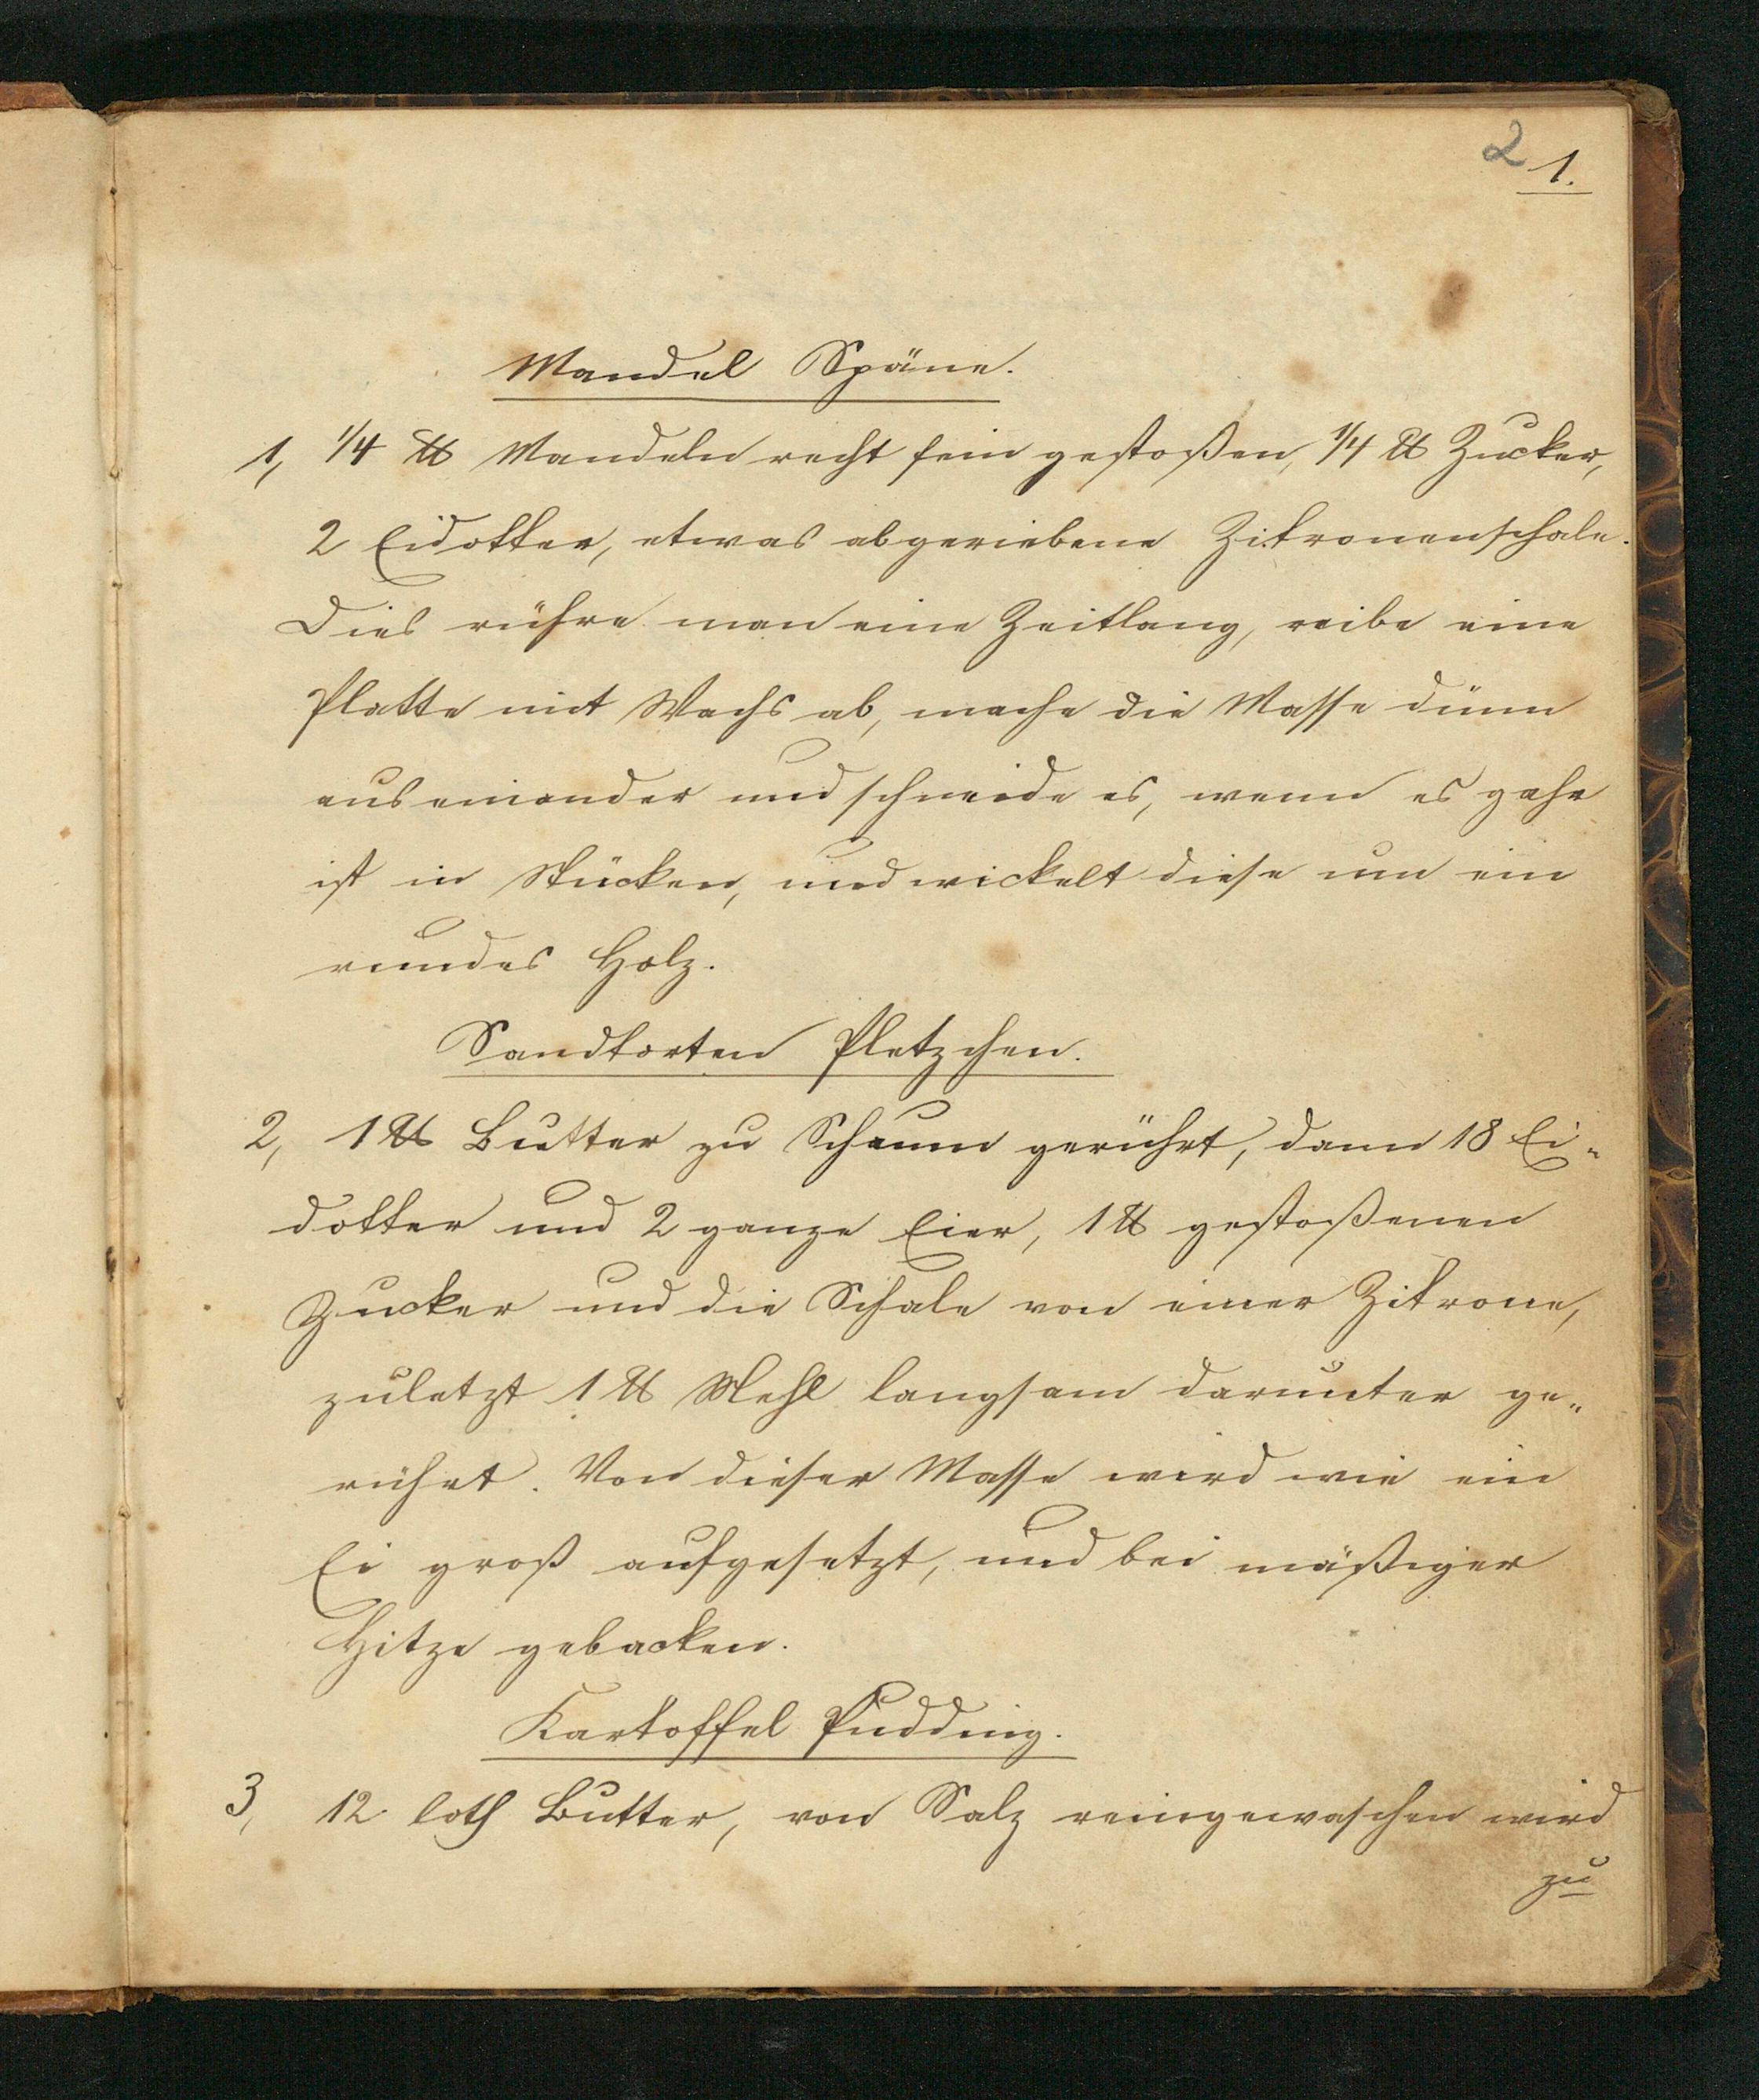 2
1.
Mandel Späne.
1, 1/4 ℔ Mandeln recht fein gestoßen, 1/4 ℔ Zucker,
2 Eidotter, etwas abgeriebene Zitronenschale.
Dies rühre man eine Zeitlang, reibe eine
Platte mit Wachs ab, mache die Masse dünn
auseinander und schneide es, wenn es gahr
ist in Stücken, und wickelt diese um ein
rundes Holz.
Sandtorten Pletzchen.
2, 1 ℔ Butter zu Schaum gerührt, dann 18 Ei-
dotter und 2 ganze Eier, 1 ℔ gestoßenen
Zucker und die Schale von einer Zitrone,
zuletzt 1 ℔ Mehl langsam darunter ge-
rührt. Von dieser Masse wird wie ein
Ei groß aufgesetzt, und bei mäßiger
Hitze gebacken.
Kartoffel Pudding.
3, 12 loth Butter, von Salz reingewaschen wird
zu